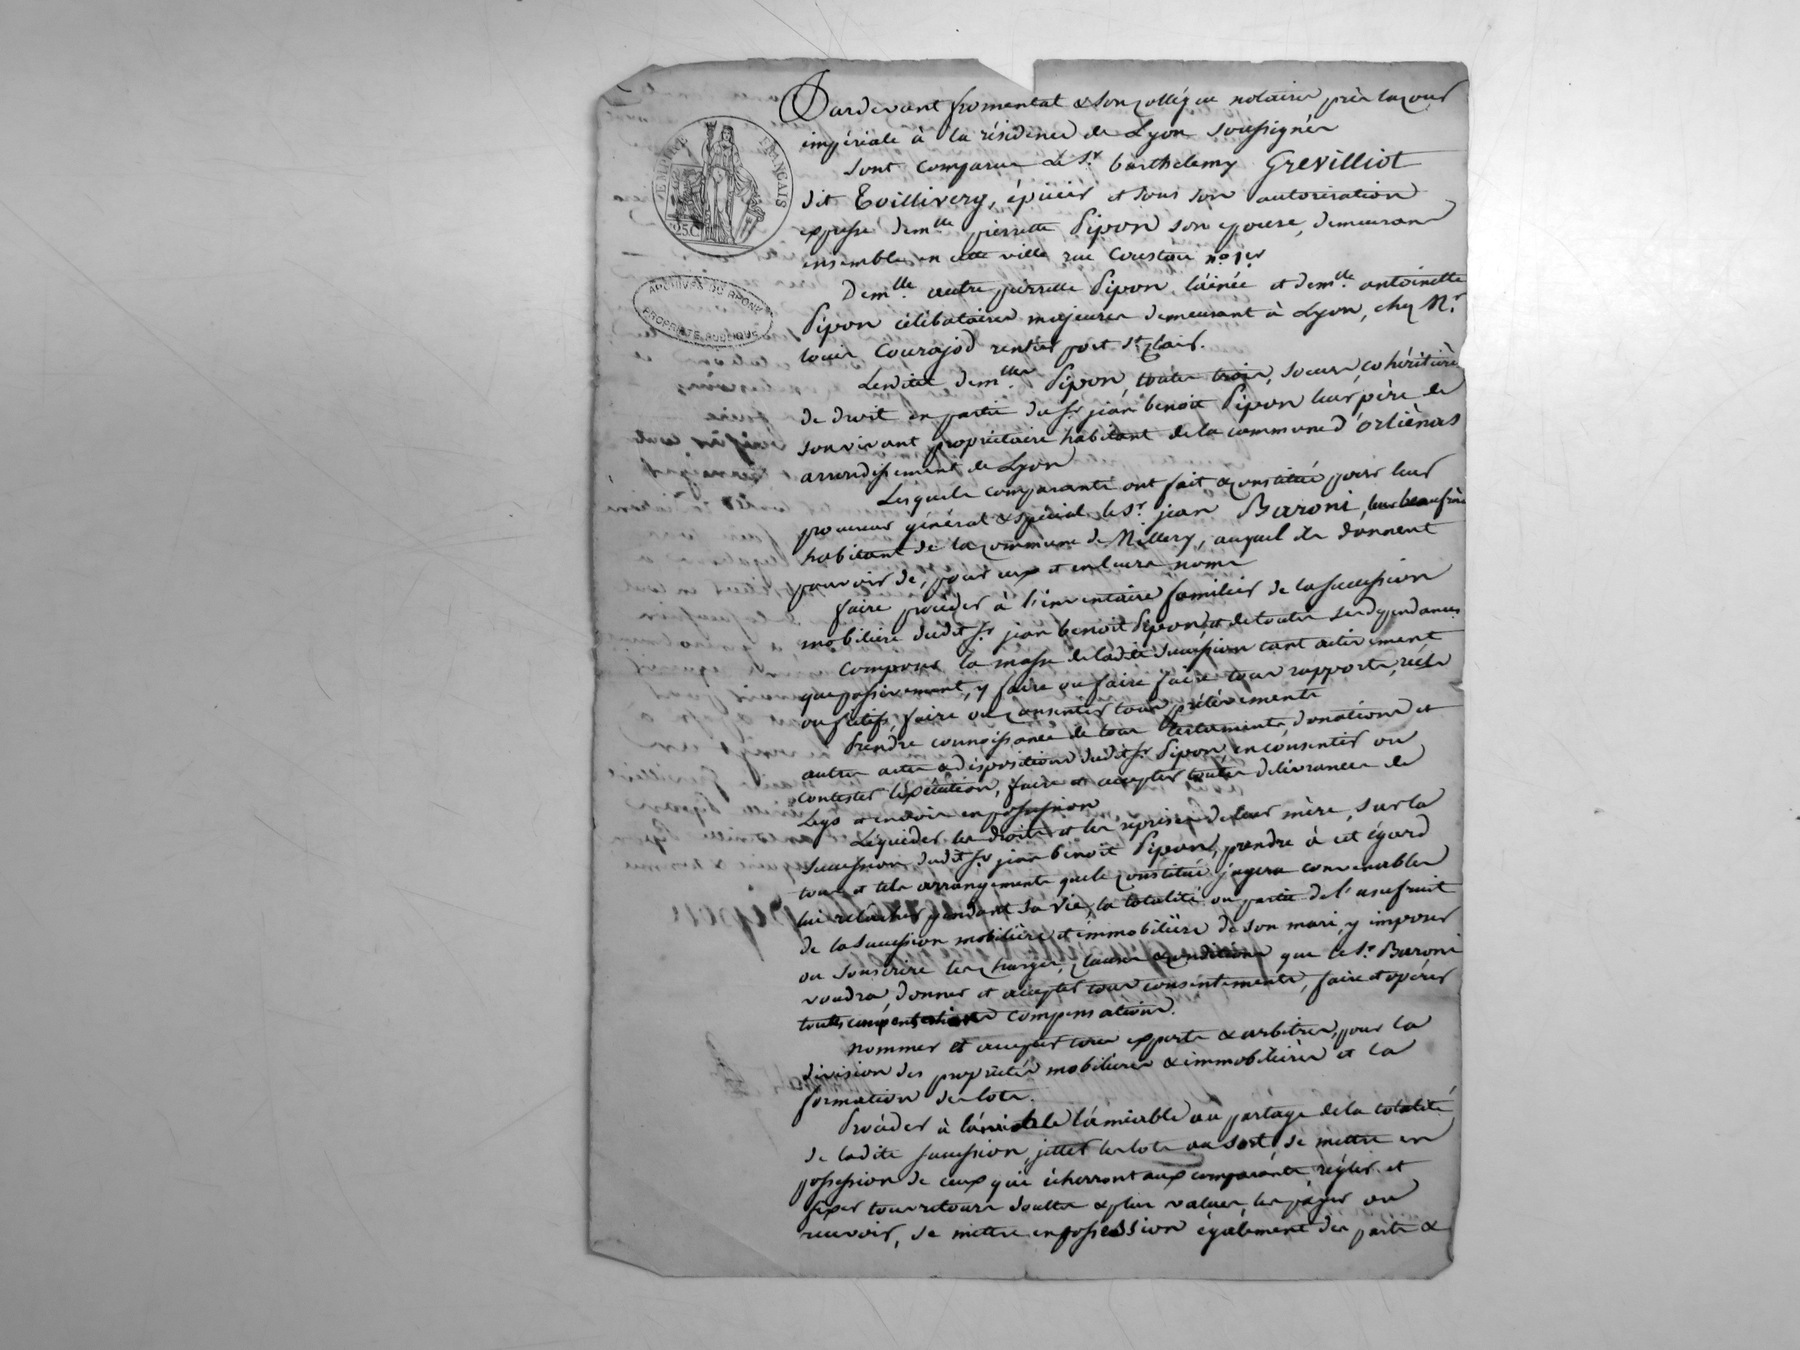 EMPIRE FRANÇAIS
25C
ARCHIVES DU RHONE
PROPRIÉTÉ PUBLIQUE
Pardevant fromental & son collégue notaires près la cour
impériale à la résidence de Lyon soussignés
sont comparus le Sr. barthelemy Grevilliot
dit Toillivery, épicier et sous son autorisation
expresse demlle pierrette Pipon son epouse, demeurans
ensemble en cette ville rue Coustou no. 1er
Demlle. autre pierrette Pipon, l'ainée et demlle. antoinette
Pipon célibataires majeures demeurant à Lyon, chez Mr.
louis Courajod rentier port St. Clair.
Lesdites demlles. Pipon, toutes trois, soeurs, cohéritières
de droit en partie du Sr jean benoit Pipon leur père de
son vivant propriétaire habitant de la commune d'orliénas
arrondissement de Lyon
Lesquels comparants ont fait & constitué pour leur
procureur général & spécial le Sr. jean Baroni, leur beaufrère
habitant de la commune de Millery, auquel ils donnent
pouvoir de, pour eux et en leurs noms
faire procéder à l'inventaire familier de la succession
mobilière dudit Sr jean benoit Pipon, et de toutes ses dependances
Composer la masse de ladite succession tant activement
que passivement, y faire ou faire faire tous rapports, réels
ou fictifs, faire ou consentir tous prélevements
Prendre connoissance de tous testaments, donations et
autres actes & dispositions dudit Sr Pipon, en consentir ou
contester l'exécution, faire et accepter toutes délivrances de
Legs et envoi en possession
Liquider les droits et les reprises de leur mère, sur la
succession dudit Sr jean benoit Pipon, prendre à cet égard
tous et tels arrangements que le constitué jugera convenables
lui relâcher pendant sa vie, la totalité ou partie de l'usufruit
de la succession mobilière et immobilière de son mari, y imposer
ou souscrire les charges, clauses & conditions que le Sr. Baroni
voudra, donner et accepter tous consentements, faire et opérer
toutes compensations.
Nommer et accepter tous experts & arbitres, pour la
division des propriétés mobilières & immobilières et la
formation des lots.
Procéder à l'amiable au partage de la totalité
de ladite succession, jetter les lots au sort, se mettre en
possession de ceux qui écherront aux comparants, régler et
fixer tous retours soultes & plus values, les payer ou
recevoir, se mettre en possession également des parts &